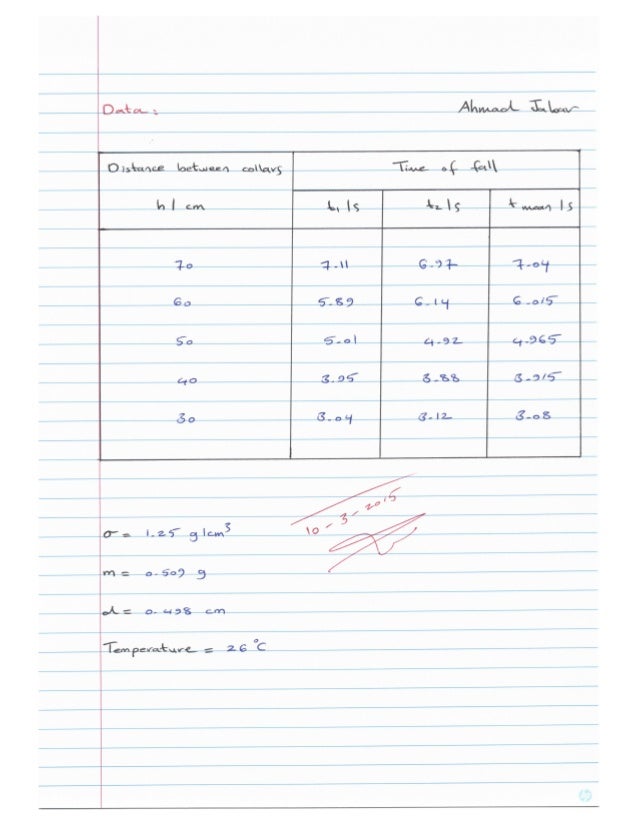 Data: Ahmad Jabar
Distance between collars Time of fall
h / cm t₁ / s t₂ / s t mean / s
70 7.11 6.97 7.04
60 5.89 6.14 6.015
50 5.01 4.92 4.965
40 3.95 3.88 3.915
30 3.04 3.12 3.08
10-3-2015
σ = 1.25 g/cm³
m = 0.509 g
d = 0.498 cm
Temperature = 26 °C